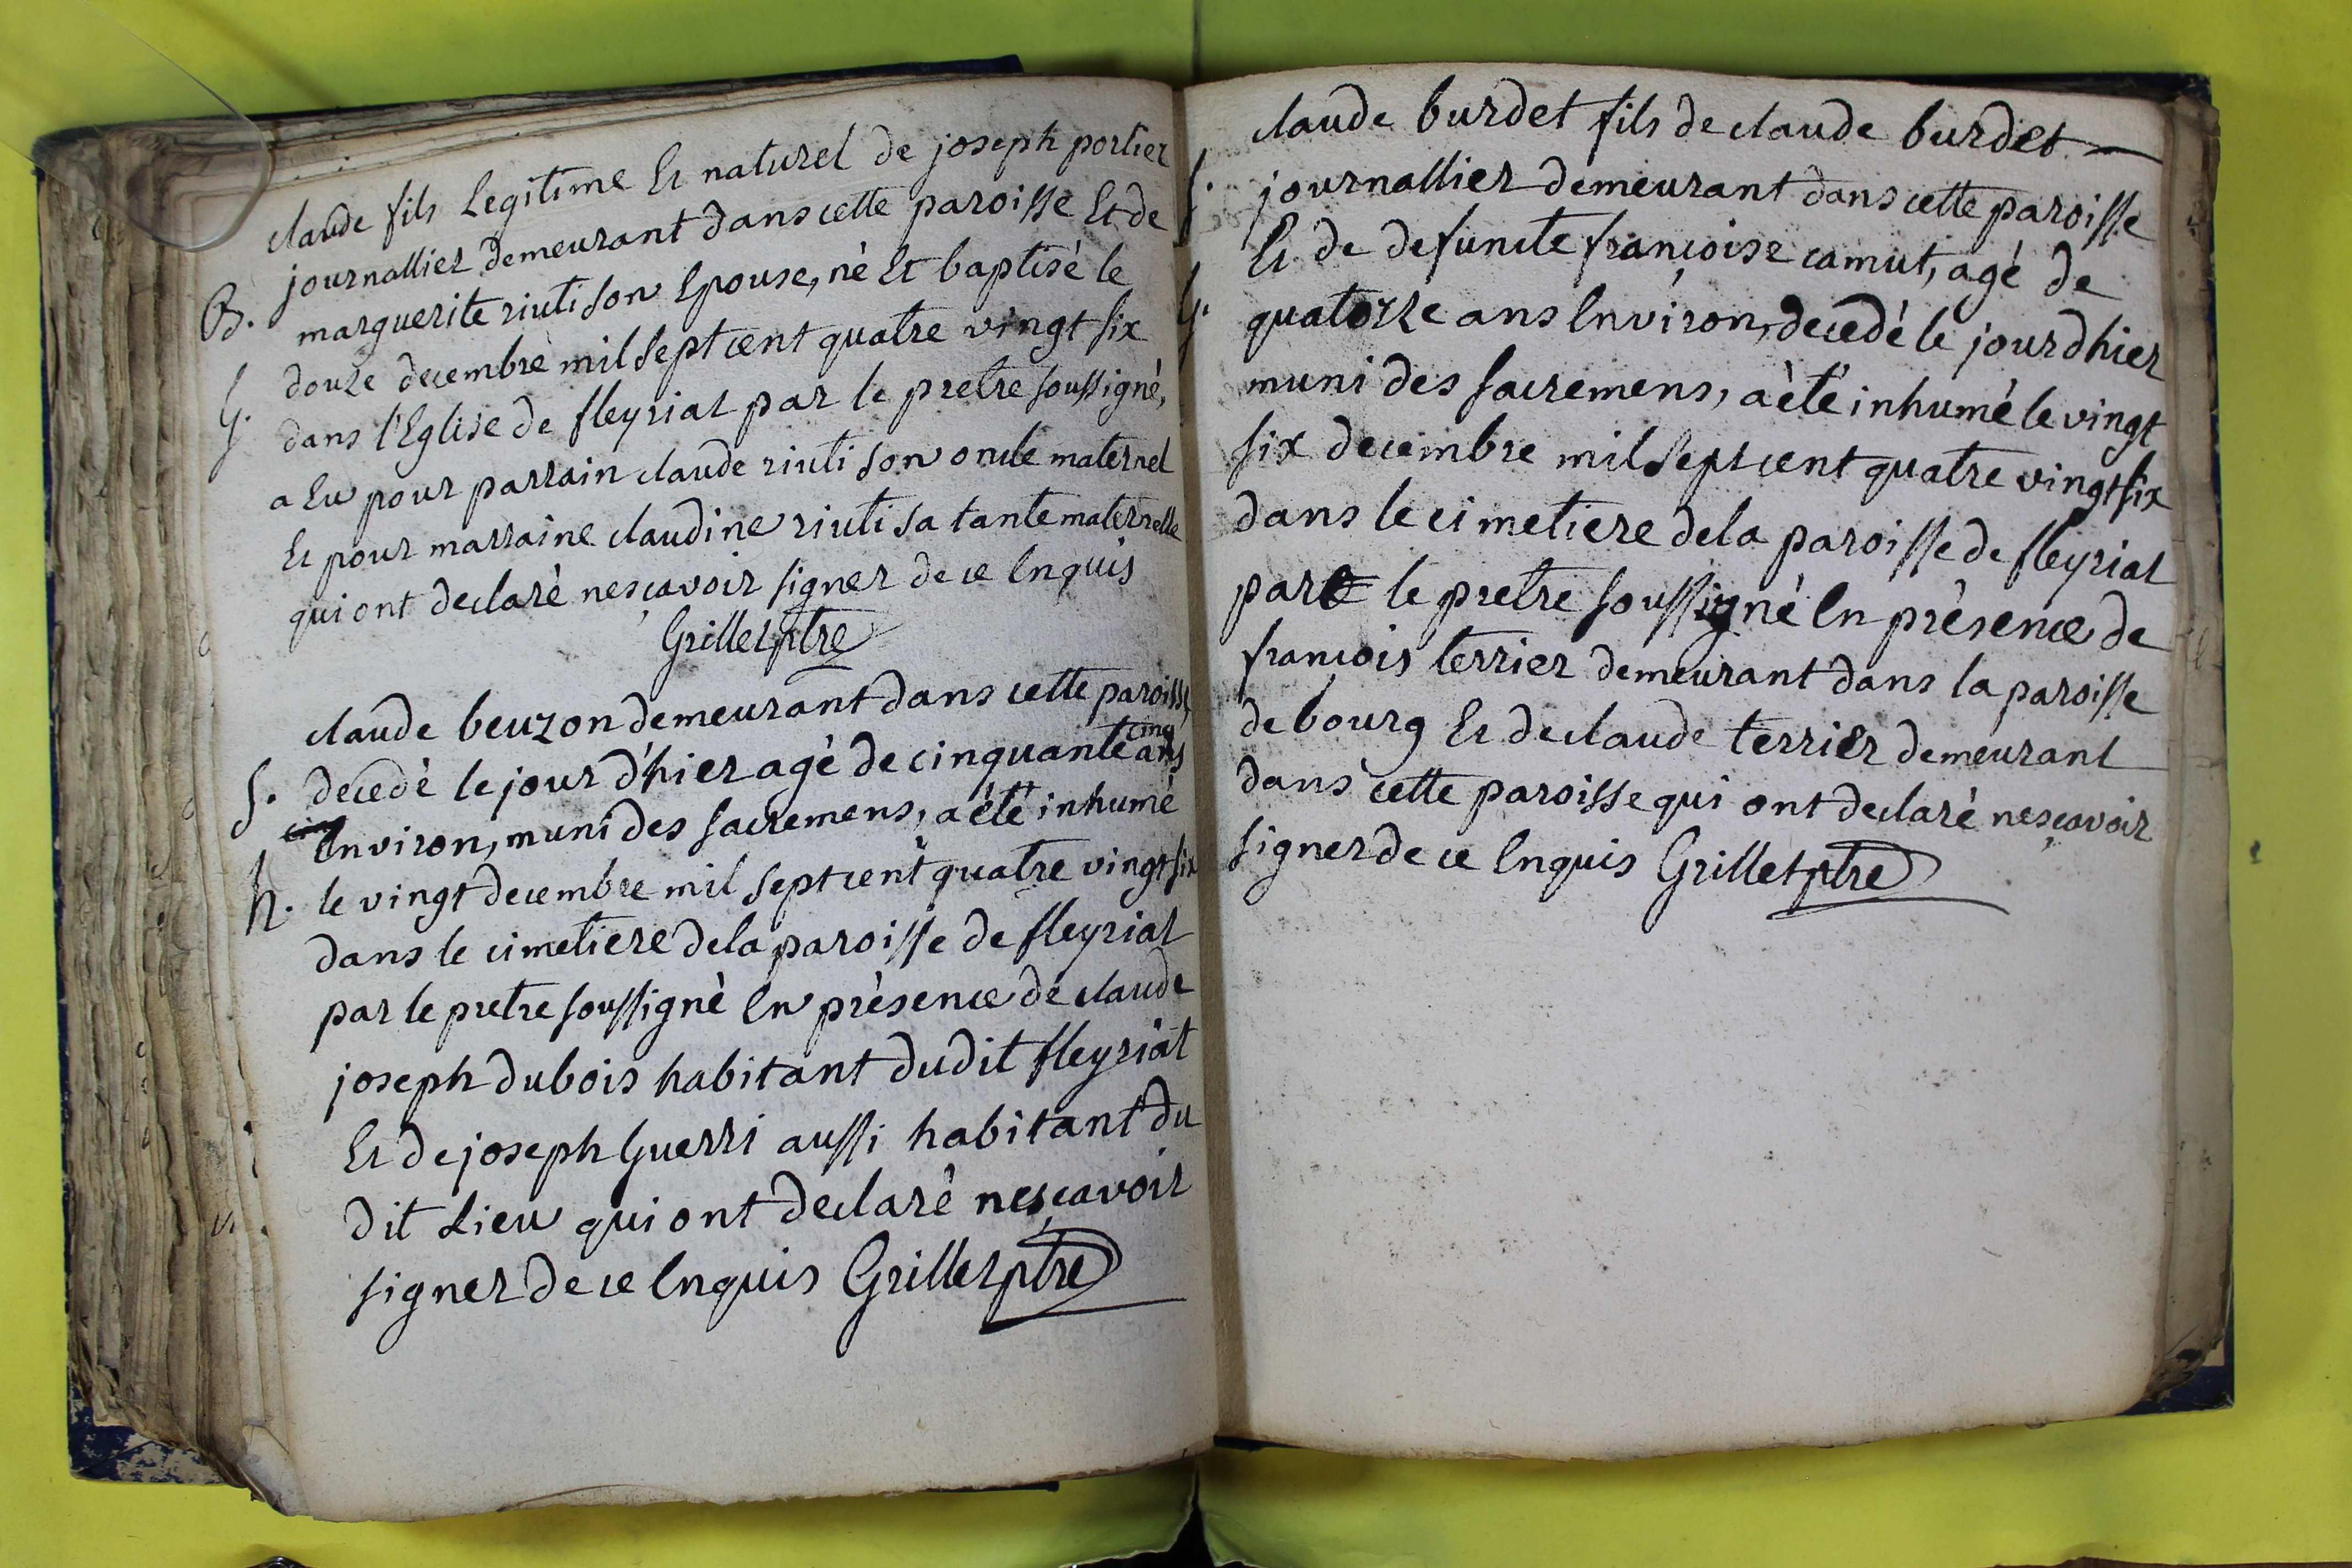 claude fils Legitime Et naturel de joseph portier
journallier demeurant dans cette paroisse Et de
B. marguerite riuti son Epouse, nè Et baptisè le
douze decembre mil sept cent quatre vingt six
G. dans l'Eglise de fleyriat par le pretre soussignè,
a Eu pour parrain claude riuti son oncle maternel
Et pour marraine claudine riuti sa tante maternelle
qui ont declarè nesçavoir signer de ce Enquis
Grillet ptre
claude beuzon demeurant dans cette paroisse,
cinq
S. decedè le jour d'hier agè de cinquante ans
Environ, muni des sacremens, a ètè inhumè
h. le vingt decembre mil sept cent quatre vingt six
dans le cimetiere dela paroisse de fleyriat
par le pretre soussignè En prèsence de claude
joseph dubois habitant dudit fleyriat
Et de joseph Guerri aussi habitant du
dit Lieu qui ont declarè nesçavoir
signer de ce Enquis Grillet ptre
claude burdet fils de claude burdet
S. journallier demeurant dans cette paroisse
Et de defuncte françoise camut, agè de
G. quatorze ans Environ, decedè le jour dhier
muni des sacremens, a ètè inhumè le vingt
six decembre mil sept cent quatre vingt six
dans le cimetiere dela paroisse de fleyriat
par le pretre soussignè En prèsence de
francois terrier demeurant dans la paroisse
de bourg Et de claude terrier demeurant
dans cette paroisse qui ont declarè nesçavoir
signer de ce Enquis Grillet ptre